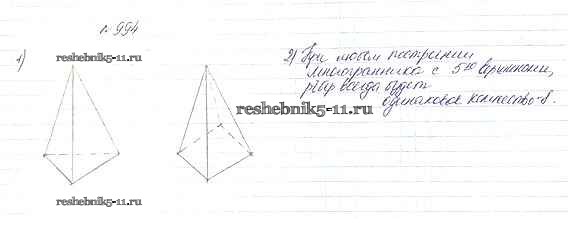 № 994
1)
reshebnik5-11.ru
2) При любом построении
многогранника с 5ю вершинами,
рёбер всегда будет
одинаковое количество-8.
reshebnik5-11.ru
reshebnik5-11.ru